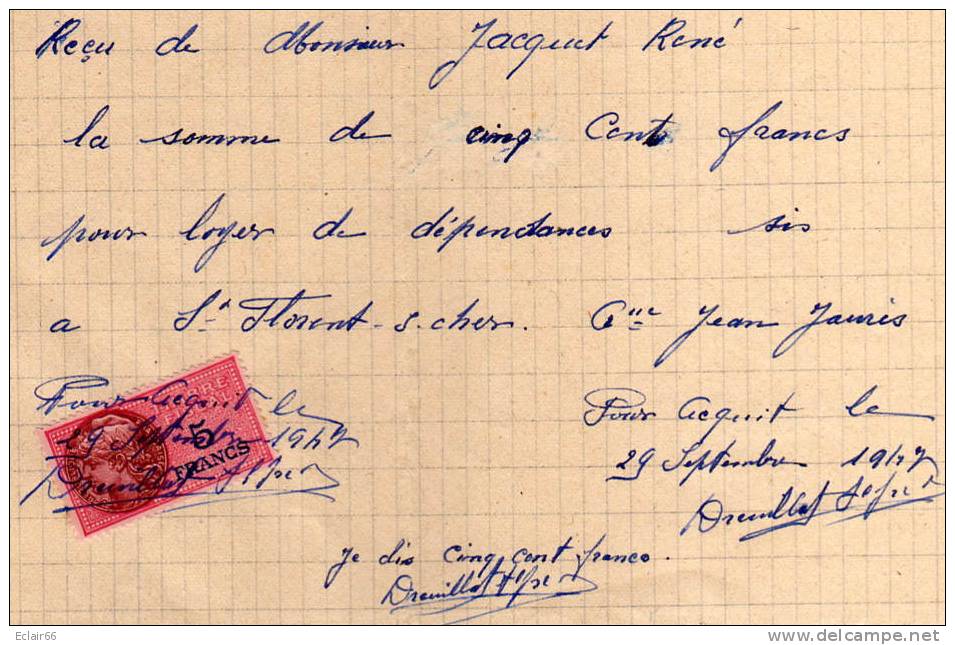 Reçu de Monsieur Jacquet René
la somme de cinq Cents francs
pour loyer de dépendances sis
a St Florent-s.cher. Cité Jean Jaurès
Pour Acquit le
29 Septembre 1947
TIMBRE
5
FRANCS
Pour Acquit le
29 Septembre 1947
Je dis Cinq cent francs.
Eclair66
delcampe.net